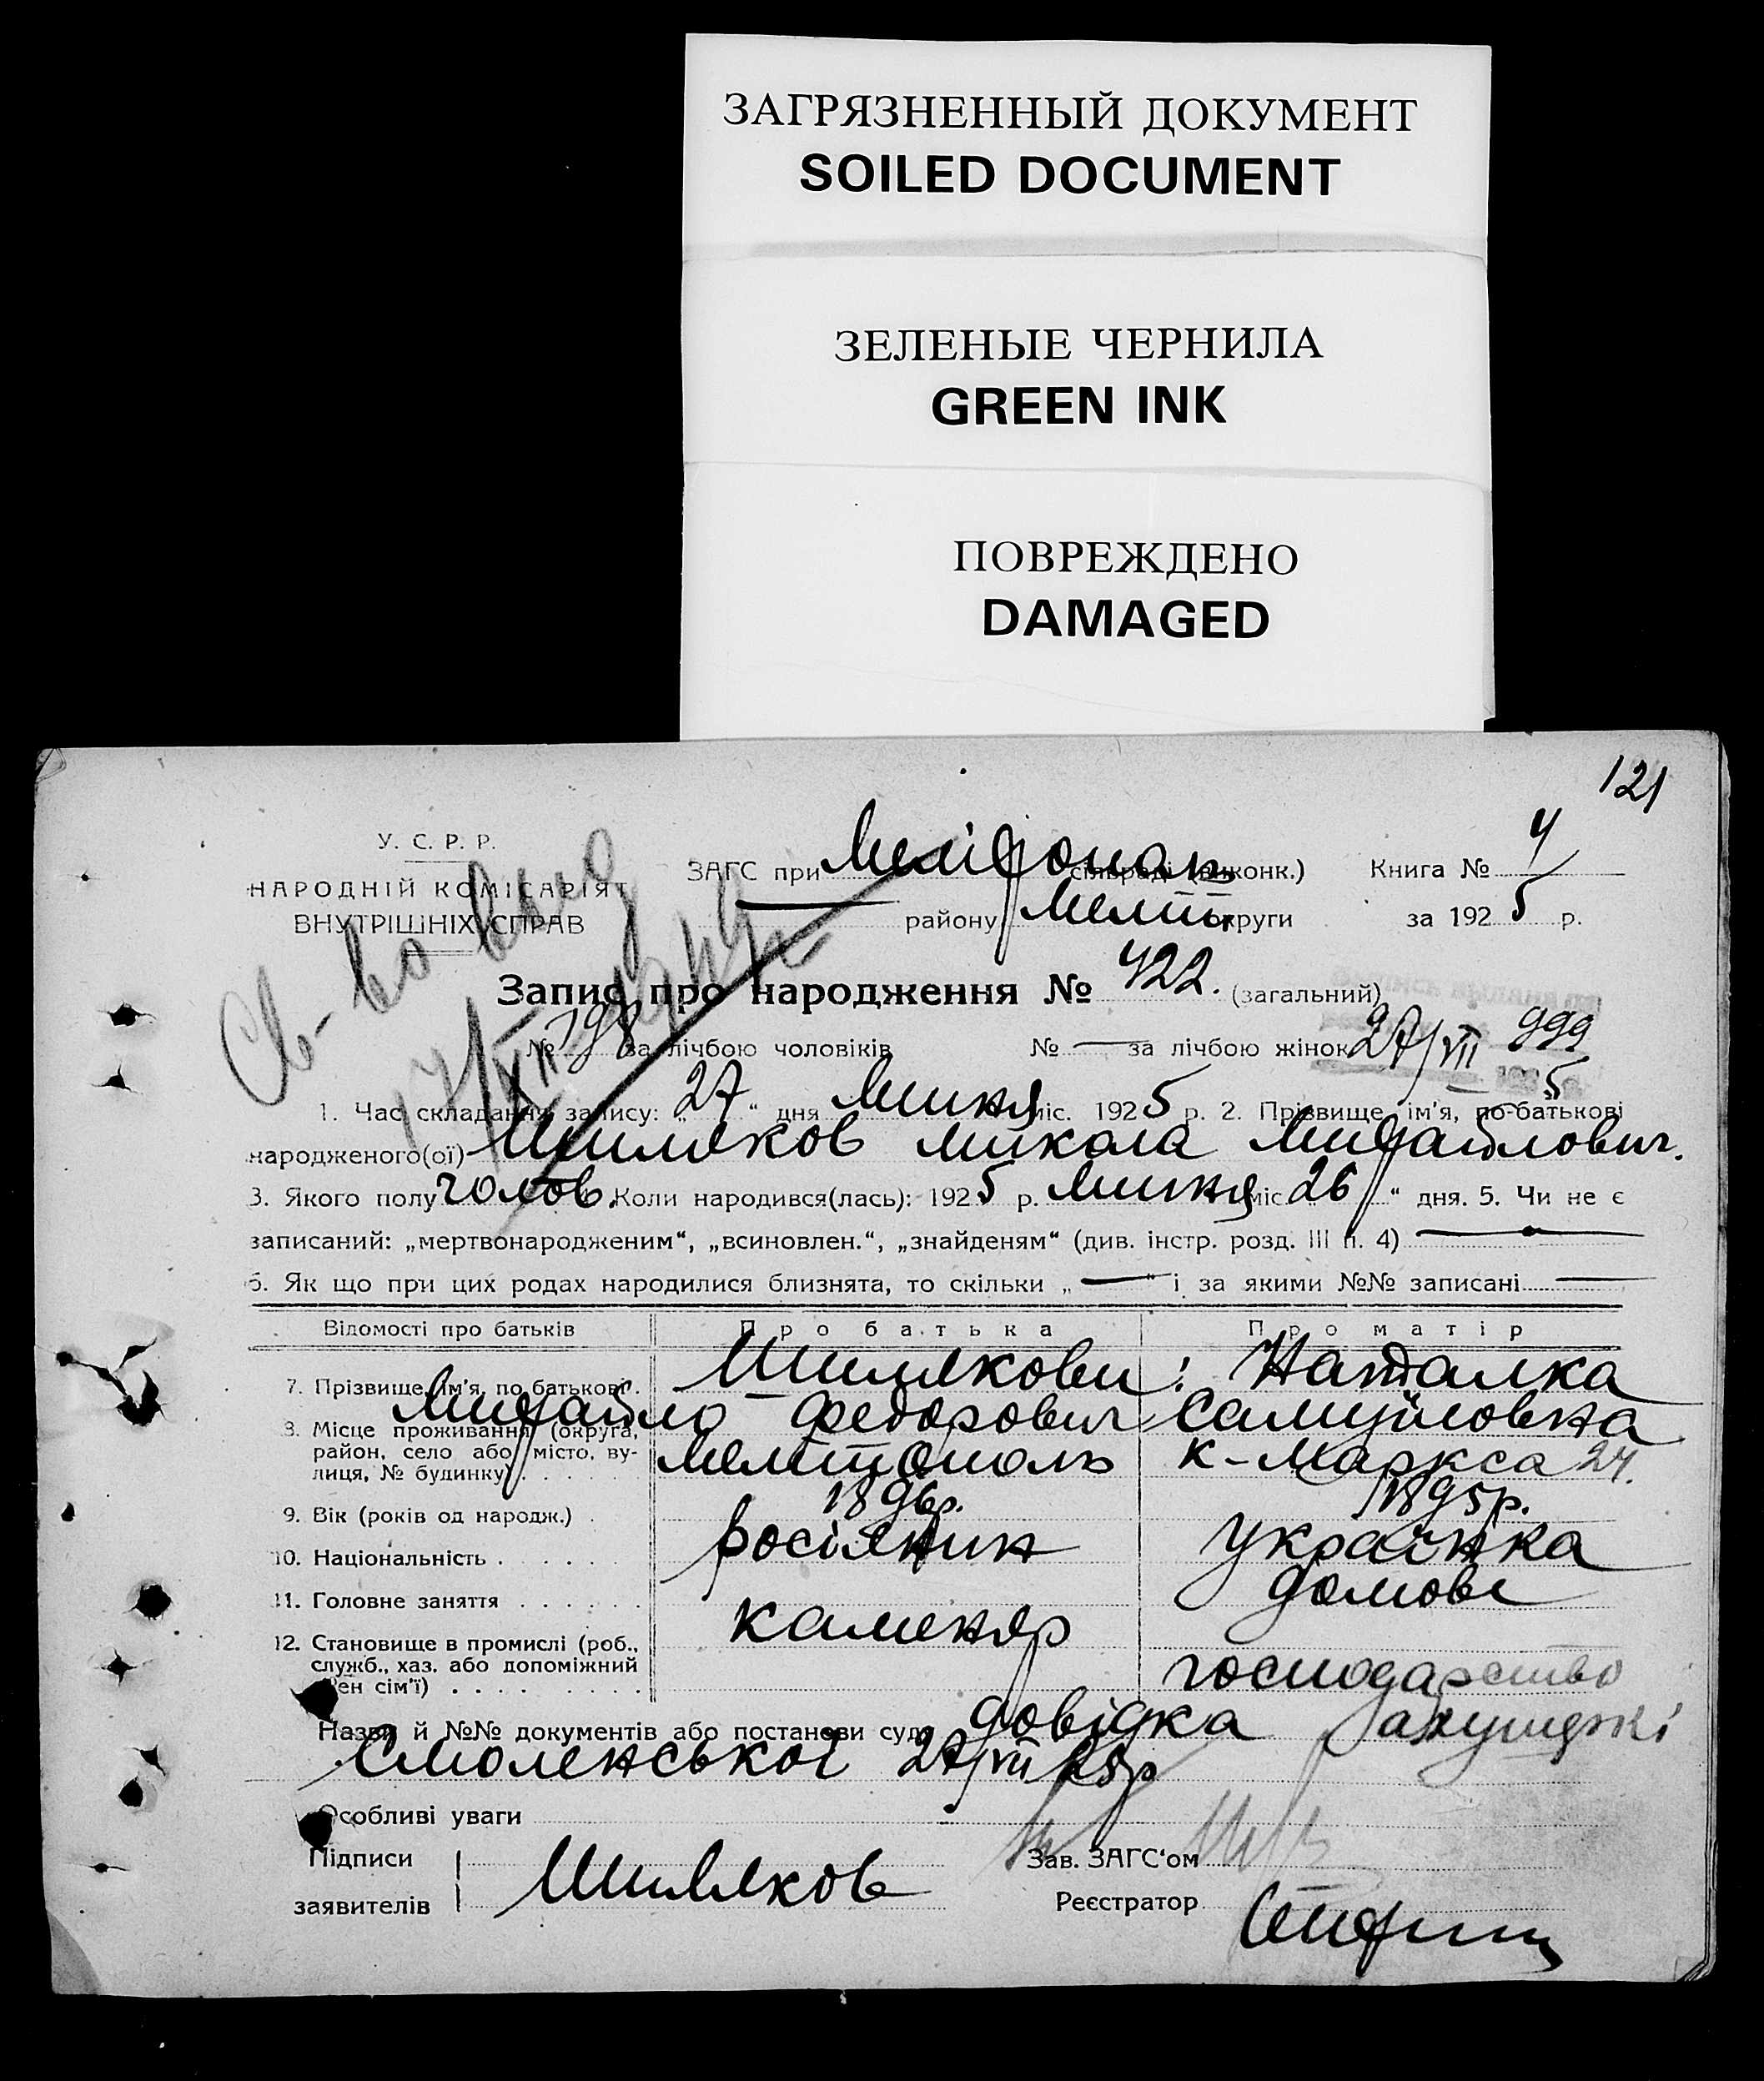 ЗАГРЯЗНЕННЫЙ ДОКУМЕНТ
SOILED DOCUMENT
ЗЕЛЕНЫЕ ЧЕРНИЛА
GREEN INK
ПОВРЕЖДЕНО
DAMAGED
121
У. С. Р. Р.
НАРОДНІЙ КОМІСАРІЯТ
ВНУТРІШНІХ СПРАВ
ЗАГС при сільраді (виконк.) Книга № 4
— району Меліт. округи за 1925 р.
Св-во выд
Запис про народження № 422. (загальний)
№ 198 за лічбою чоловіків № — за лічбою жінок 27/VII 999
1. Час складання запису: „27“ дня Липня міс. 1925 р. 2. Прізвище, ім'я, по-батькові
народженого(ої) Шишляков Микола Михайлович.
3. Якого полу чолов. Коли народився(лась): 1925 р. Липня міс. „26“ дня. 5. Чи не є
записаний: „мертвонародженим“, „всиновлен.“, „знайденям“ (див. інстр. розд. III п. 4) —
6. Як що при цих родах народилися близнята, то скільки „—“ і за якими №№ записані —
Відомості про батьків Про батька Про матір
7. Прізвище, ім'я, по батькові. Шишлякови: Наталка
Михайло Федорович Самуйловна
8. Місце проживання (округа, район, село або місто, вулиця, № будинку) Мелітополь К-Маркса 24.
9. Вік (років од народж.) 1896р. 1895р.
10. Національність росіянин українка
11. Головне заняття каменяр домове
12. Становище в промислі (роб., служб., хаз. або допоміжний член сім'ї) господарство
Назви й №№ документів або постанови суду довідка акушерки
Смоленської 27/VII 25р
Особливі уваги
Підписи
заявителів Шишляков
Зав. ЗАГС'ом
Реєстратор